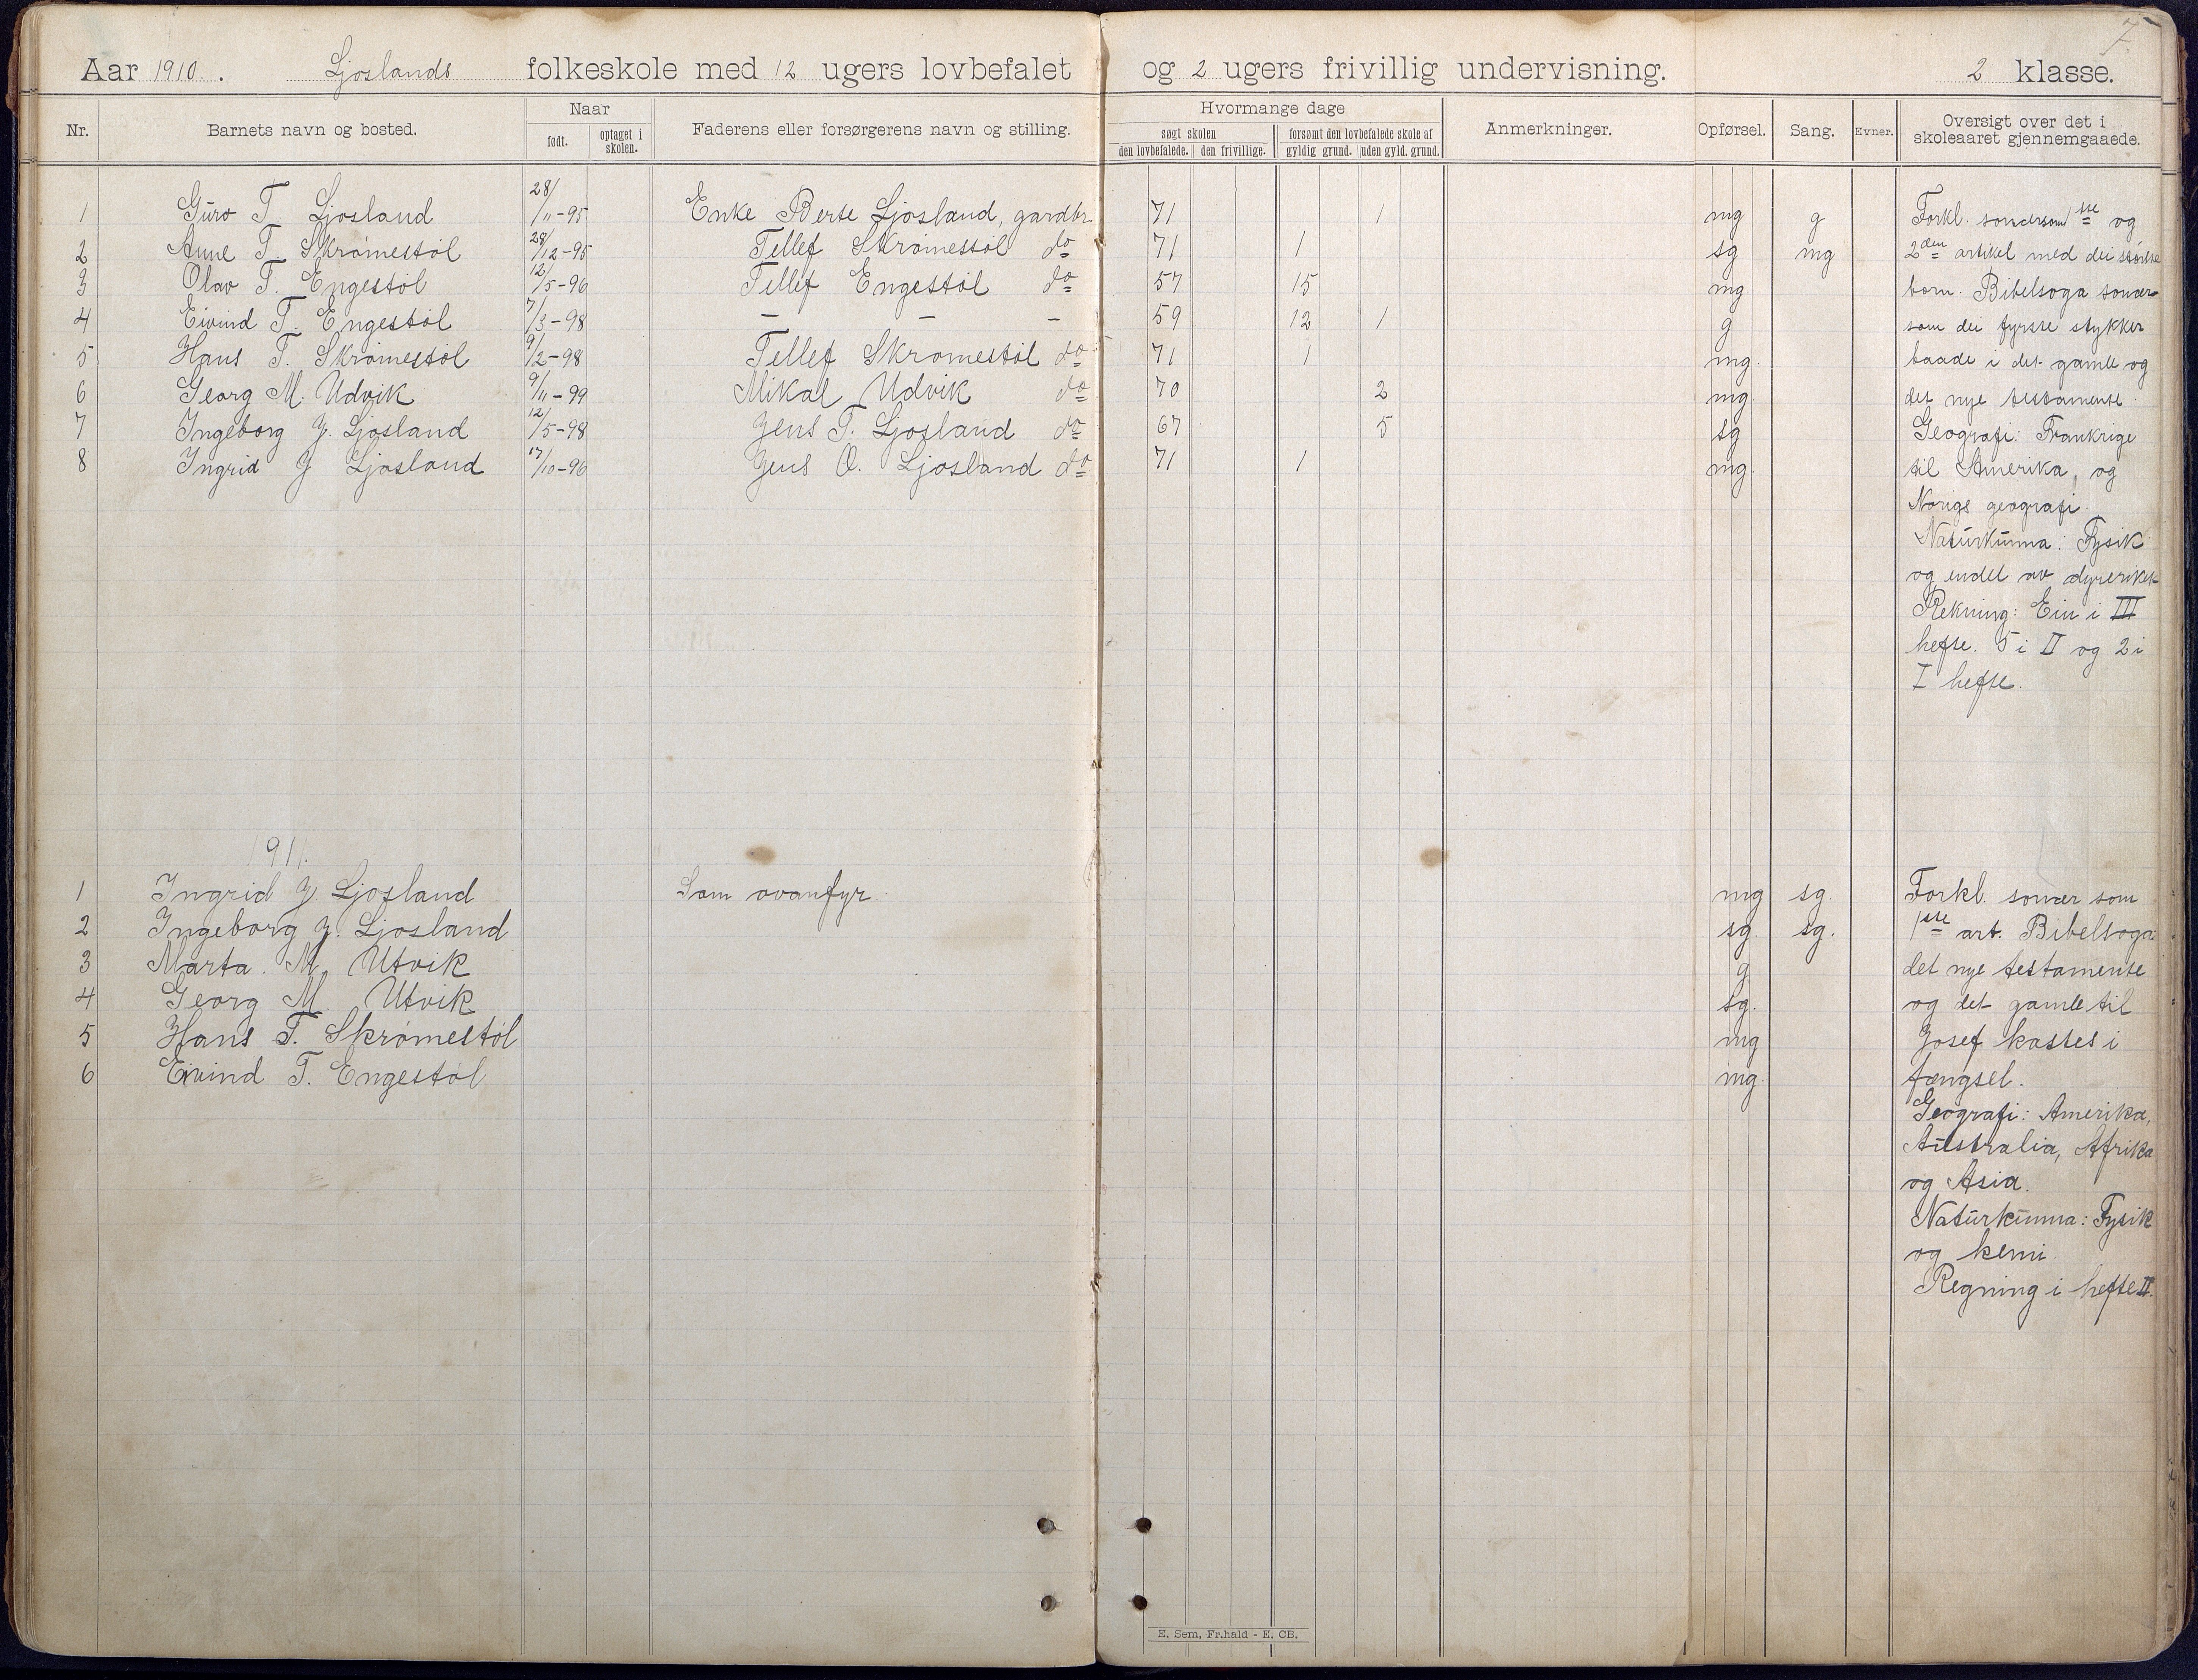 7.
Aar 1910. Ljoslands folkeskole med 12 ugers lovbefalet og 2 ugers frivillig undervisning. 2 klasse.
Nr. Barnets navn og bosted. Naar født. optaget i skolen. Faderens eller forsørgerens navn og stilling. Hvormange dage søgt skolen den lovbefalede. den frivillige. forsømt den lovbefalede skole af gyldig grund. uden gyld. grund. Anmerkninger. Opførsel. Sang. Evner. Oversigt over det i skoleaaret gjennemgaaede.
1 Guro T. Ljosland 28/11-95 Enke Berte Ljosland, gardbr. 71 1 mg g
2 Anne T. Skrømestøl 28/12-95 Tellef Skrømestøl do 71 1 sg mg
3 Olav T. Engestøl 12/5-96 Tellef Engestøl do 57 15 mg
4 Eivind T. Engestøl 7/3-98 – – – 59 12 1 g
5 Hans T. Skrømestøl 9/2-98 Tellef Skrømestøl do 71 1 mg
6 Georg M. Udvik 9/11-99 Mikal Udvik do 70 2 mg
7 Ingeborg J. Ljosland 12/5-98 Jens T. Ljosland do 67 5 sg
8 Ingrid J Ljosland 17/10-96 Jens O. Ljosland do 71 1 mg.
Forkl. sonærsom 1ste og
2den artikel med dei største
born. Bibelsoga sonær
som dei fyrste stykker
baade i det gamle og
det nye testamente.
Geografi: Frankrige
til Amerika, og
Norigs geografi.
Naturkunna: Fysik
og endel av dyreriket
Rekning: Ein i III
hefte. 5 i II og 2 i
I hefte.
1911.
1 Ingrid J Ljosland Som ovanfyr. mg sg.
2 Ingeborg J. Ljosland sg. sg.
3 Marta. M. Utvik g
4 Georg M. Utvik sg.
5 Hans T. Skrømestøl mg
6 Eivind T. Engestøl mg.
Forkl. sonær som
1ste art. Bibelsoga:
det nye testamente
og det gamle til
Josef kastes i
fængsel.
Geografi: Amerika,
Australia, Afrika
og Asia.
Naturkunna: Fysik
og kemi
Regning i hefte II.
E. Sem, Fr.hald - E. CB.